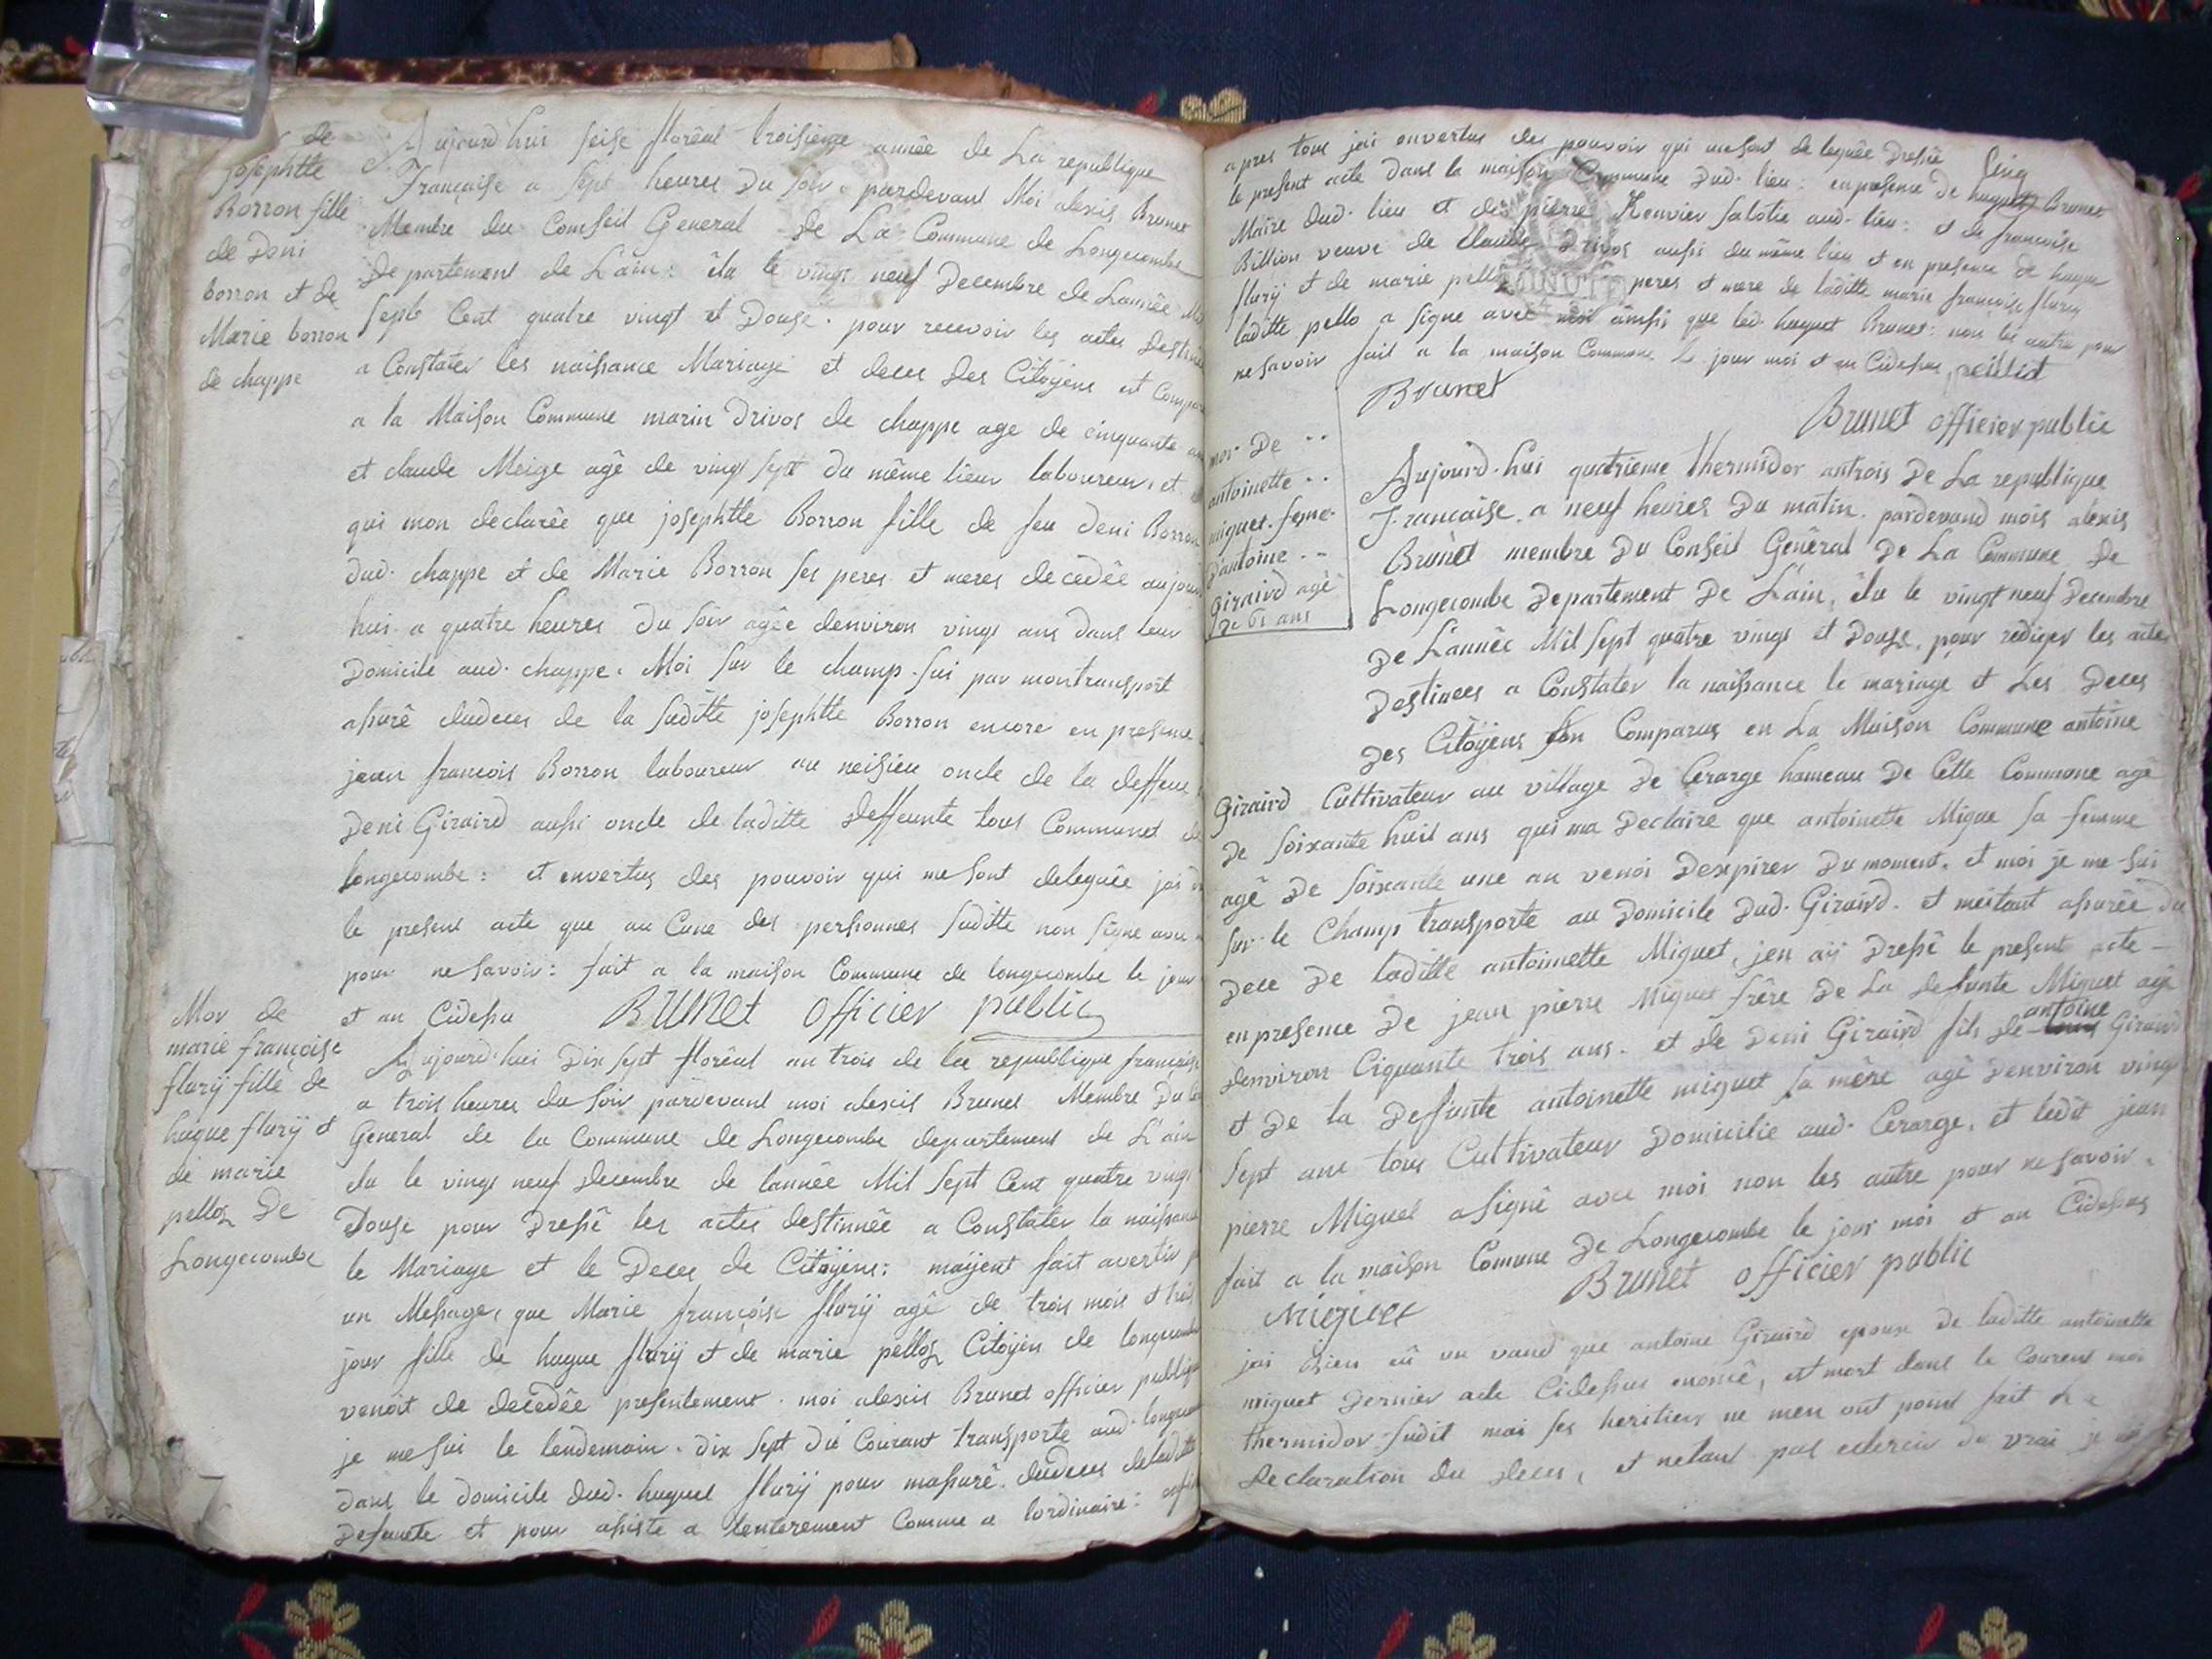 de
josephtte
Borron fille
de Deni
borron et de
Marie borron
de chappe
Aujourd'hui seise floréal troisieme année de La republique
Française a sept heures Du soir pardevant Moi alexis Brunet
Membre du Conseil General de La Commune de Longecombe
Departement de L'ain: élu le vingt neuf Decembre de Lannêe Mil
sept Cent quatre vingt et Douse. pour recevoir les actes Destiné
a Constater les naissance Mariage et deces Des Citoyens est Compar
a la Maison Commune marin Drivos de chappe age de cinquante an
et claude Meige agê de vingt sept du même lieu laboureur, et
qui mon declarêe que josephtte Borron fille de feu Deni Borron
dud. chappe et de Marie Borron ses peres et meres decedêe aujour
hui a quatre heures du soir agêe denviron vingt ans dans leur
Domicile aud. chappe. Moi sur le champ sui par montransport
assurê dudeces de la suditte josephtte Borron encore en presence
jean francois Borron laboureur au neisieu oncle de la deffeun
Deni Giraird aussi oncle de laditte deffeunte tous Communet de
longecombe: et envertus des pouvoir qui me sont deleguêe jai
le present acte que au Cune des personnes suditte non signe avec
pour ne savoir: fait a la maison Commune de longecombe le jour
et an Cidessu BRUNET officier public
Mor de
marie françoise
flurÿ fille de
hugue flurÿ et
de marie
pelloz De
Longecombe
Aujourd'hui Dix sept floréal an trois de la republique française
a trois heures du soir pardevant moi alexis Brunet Membre Du
General de la Commune de Longecombe departement de L'ain
élu le vingt neuf decembre de lannêe Mil Sept Cent quatre vingt
Douse pour Dressê les actes destinnêe a Constater la naissance
le Mariage et le Deces de Citoyens: mayent fait avertir p
un Message, que Marie françoise flurÿ agê de trois mois et trois
jour fille de hugue flurÿ et de marie pelloz Citoyen de longecombe
venoit de decedêe presentement. moi alexis Brunet officier publique
je me sui le lendemain. dix sept du Courant transporte aud. longecom
dans le domicile dud. huguet flurÿ pour massurê. dudeces deladitte
Defunete et pour assiste a lenterement Comme a lordinaire:
Cinq
apres tous jai envertus des pouvoir qui me sont deleguêe Dressê
le present acte dans la maison Commune Dud. lieu: en presence de huguet Brunet
Maire dud. lieu et de pierre Henvier sabotie aud. lieu: et de francoise
Billion veuve de Claude Drivos aussi du même lieu et en presence de hugue
flurÿ et de marie pello peres et mere de laditte marie francoise flurÿ
laditte pello a signe avec moi ainsi que led. huguet Brunet: non les autre pour
ne savoir fait a la maison Commune le jour moi et an Cidessu
Brunet
Brunet officier public
mor De
antoinette
miguet. feme.
d'antoine
Giraird agê
De 61 ans
Aujourd-hui quatrieme thermidor antrois De La republique
Francaise. a neuf heures Du matin. pardevand mois alexis
Brunet membre Du Conseil Gênêral De La Commune De
Longecombe Departement De L'ain, élu le vingt neuf Decembre
De L'annêe Mil Sept quatre vingt et Douse, pour rediger les actes
Destinees a Constater la naissance le mariage et Les Deces
Des Citoÿens Son Comparus en La Maison Commune antoine
Giraird Cultivateur au village De Cerarge hameau De Cette Commune agê
De soixante huit ans qui ma Declaire que antoinette Migue sa femme
agê De soixante une an venoi Dexpirer Du moment. et moi je me sui
sur le Champ transporte au Domicile Dud. Giraird. et meitant assurêe du
Dece De laditte antoinette Miguet, jen aÿ Dressê le present acte
en presence De jean pierre Miguet frêre De La defunte Miguet agê
denviron Ciquante trois ans. et De Deni Giraird fils de antoine Giraird
et De la Defunte antoinette miguet sa mêre agê Denviron vingt
Sept ans tous Cultivateur Domicilie aud. Cerarge, et ledit jean
pierre Miguet asignê avec moi non les autre pour ne savoir.
fait a la maison Comune De Longecombe le jour moi et an Cidessus
Miguet
Brunet officier public
jai bien eû un vand que antoine Giraird epoux De laditte antoinette
miguet Dernier acte Cidessus enomê, et mort dans le Courent moi
thermidor sudit mai ses heritier ne men ont point fait La
Declaration du deces, et netant pas eclerci du vrai je